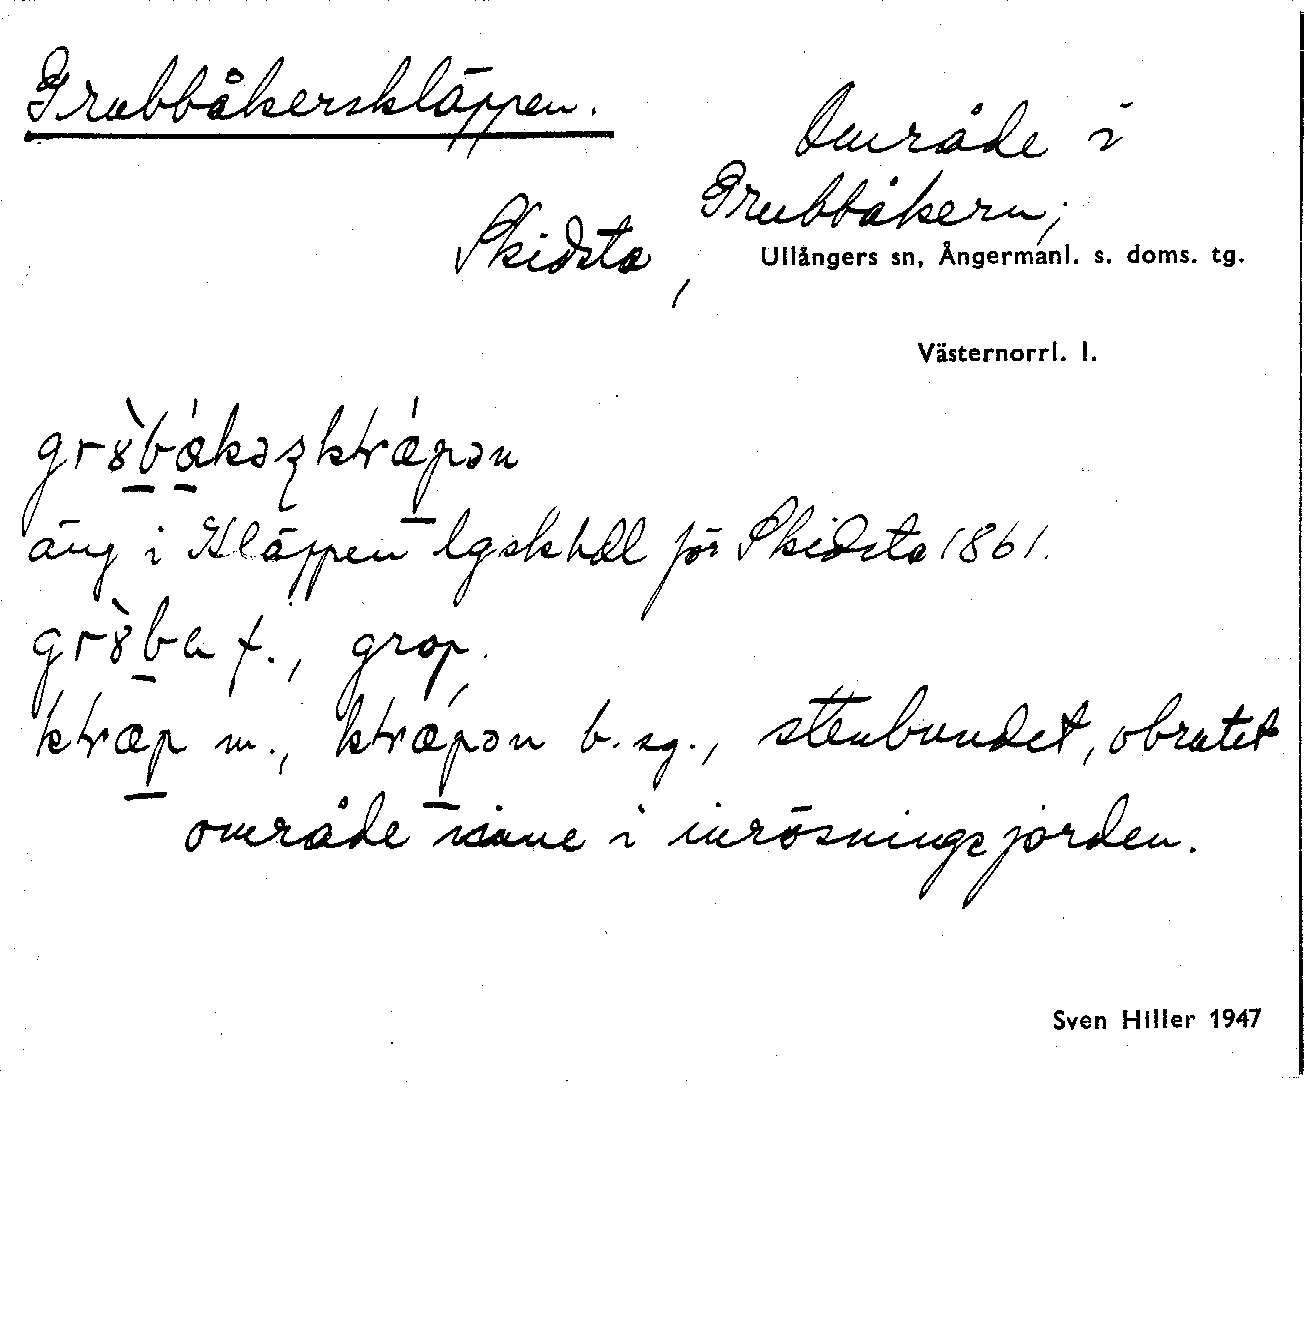 Grubbåkerskläppen.
Område i
Grubbåkern;
Skidsta,
Ullångers sn, Ångermanl. s. doms. tg.
Västernorrl. l.
äng i Kläppen lgskhdl för Skidsta 1861.
f., grop.
m., b. sg., stenbundet, obrutet
område inne i inrösningsjorden.
Sven Hiller 1947